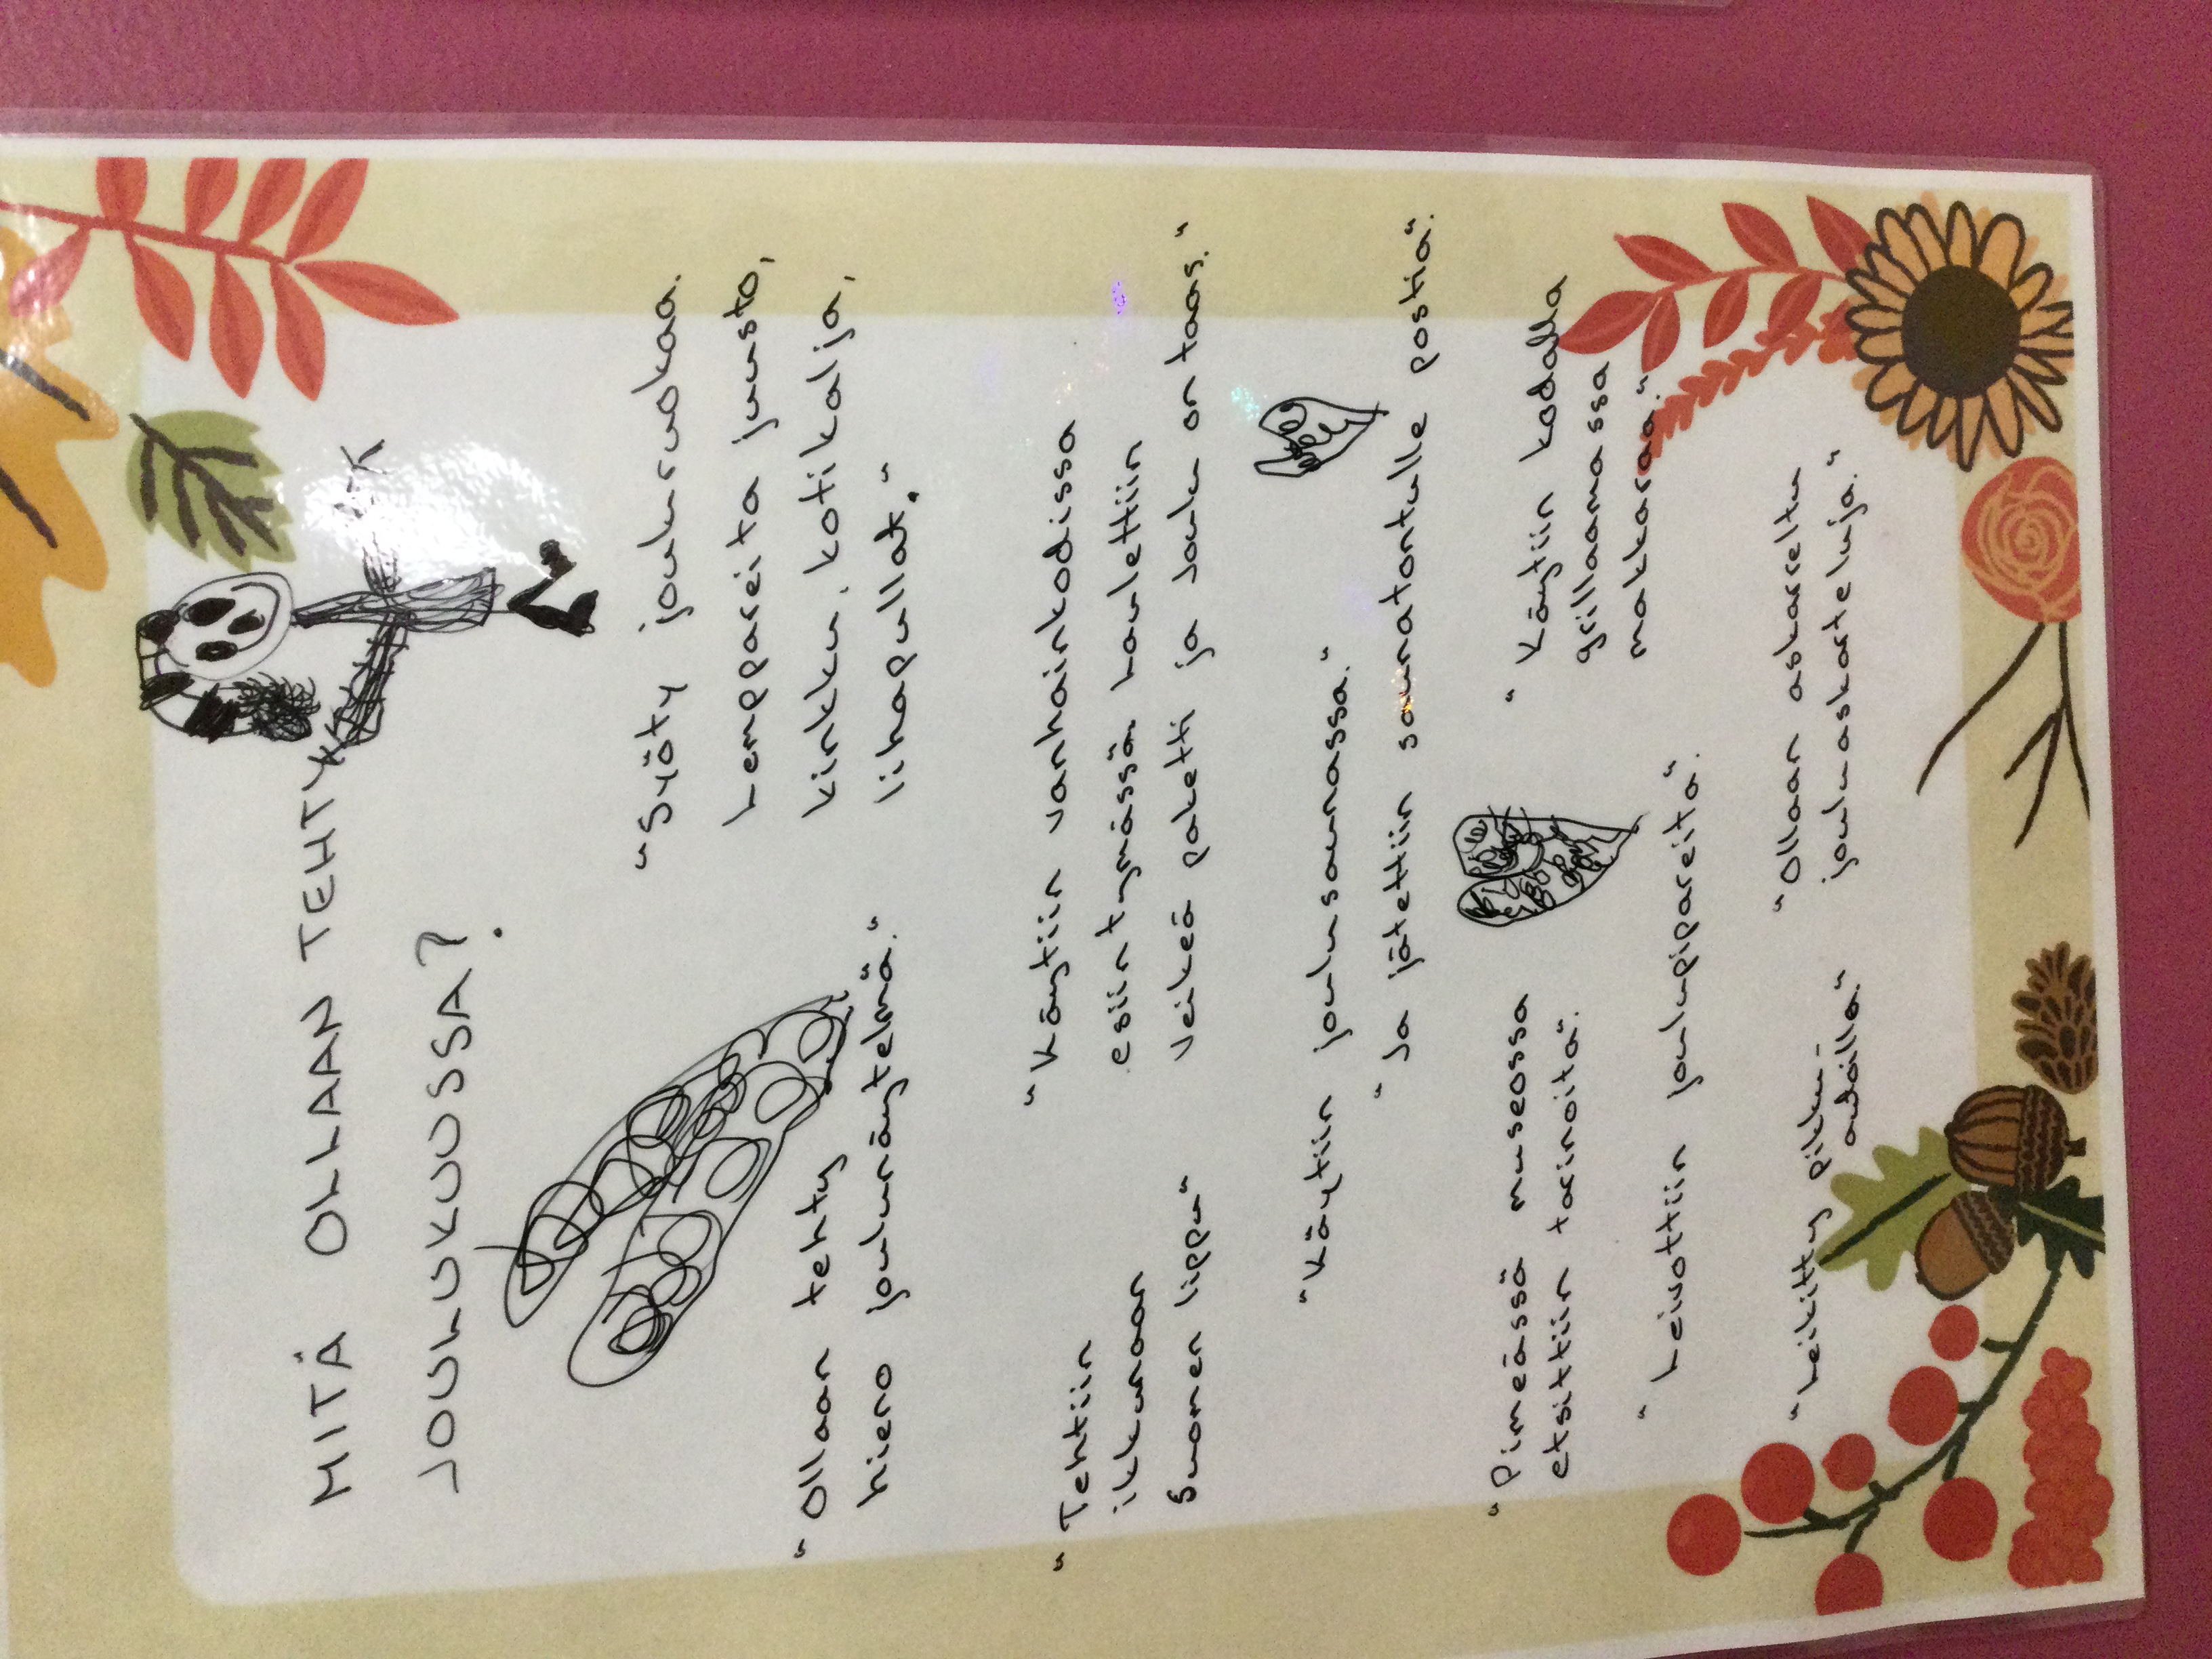 MITÄ OLLAAN TEHTY
JOULUKUUSSA?
"Syöty jouluruokaa.
Lemppareita juusto,
kinkku, kotikalja,
lihapullat."
"Ollaan tehty
hieno joulunäytelmä."
"Käytiin vanhainkodissa
esiintymässä laulettiin
veikeä paketti ja Joulu on taas."
"Tehtiin
ikkunaan
Suomen lippu"
"Käytiin joulusaunassa."
"Ja jätettiin saunatontulle postia".
"Pimeässä museossa
etsittiin tarinoita".
"Käytiin kodalla
grillaamassa
makkaraa."
"Leivottiin joulupipareitä".
"Leikitty pikku-
autoilla."
"Ollaan askarreltu
jouluaskarteluja."